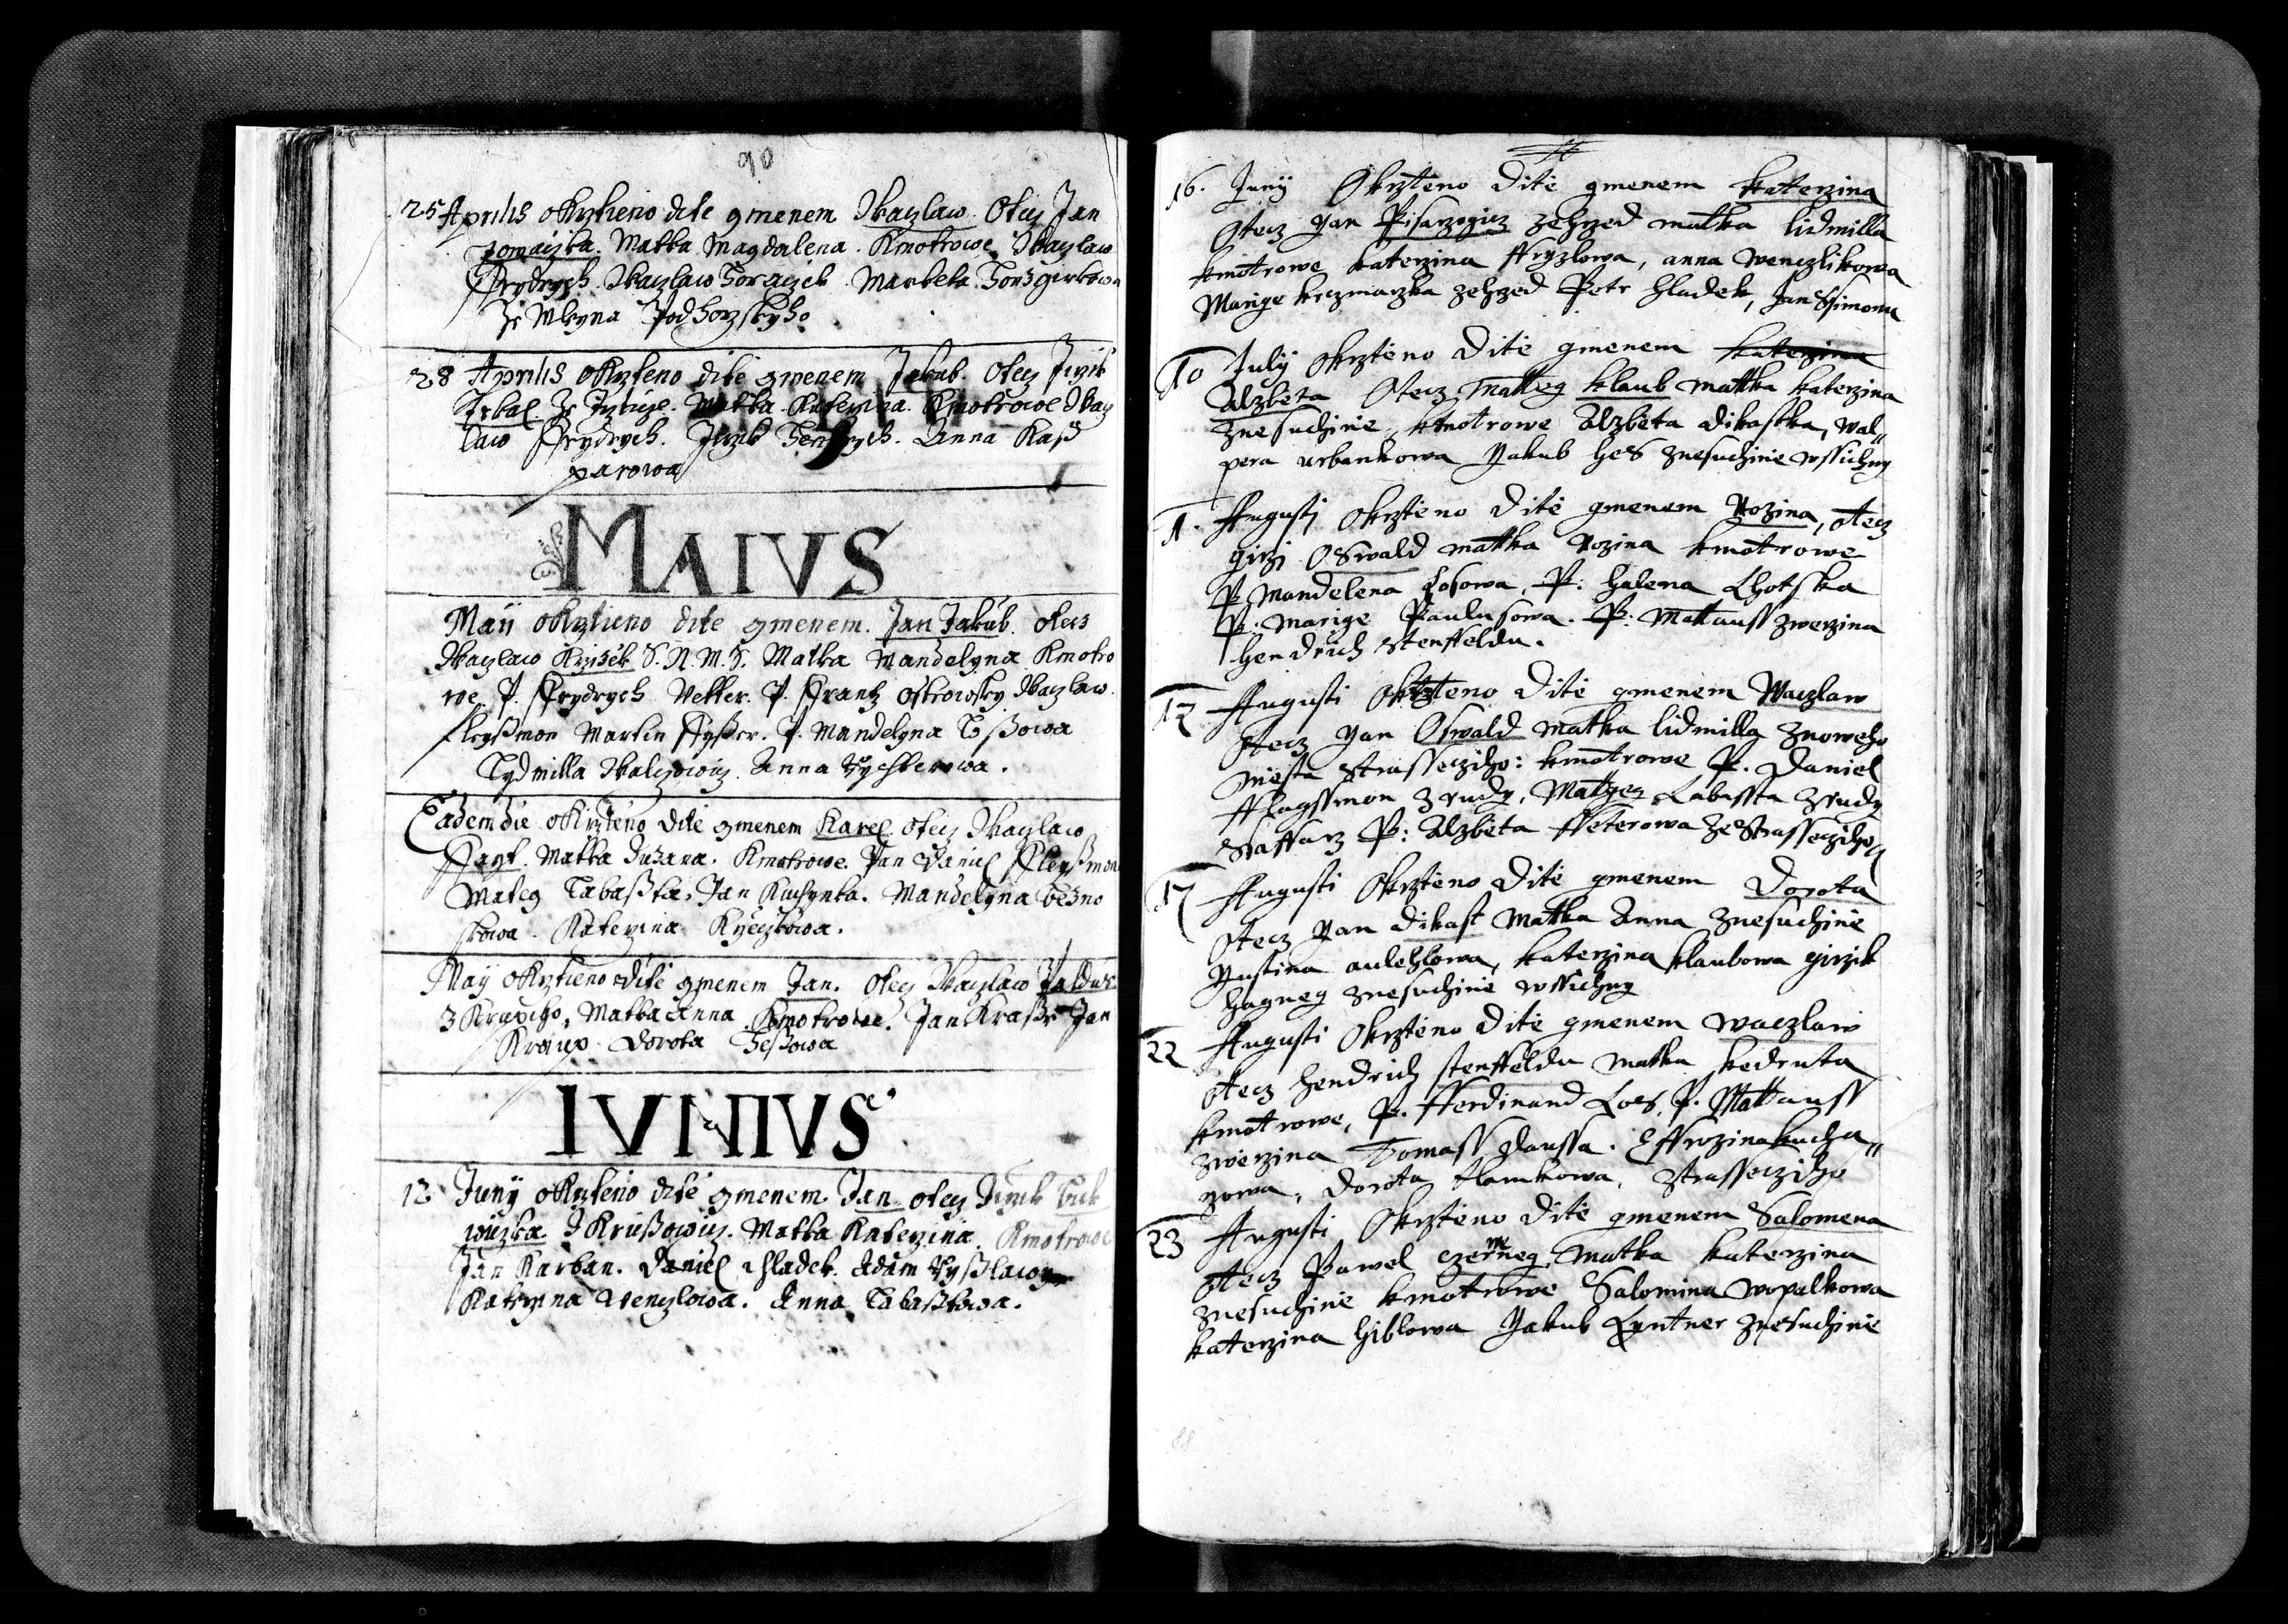 90
25 Aprilis okrztieno dite gmenem Waczlaw. Otecz Jan
Matka Magdalena. Kmotrowe Waczlaw
Frydrych. Waczlaw Marketa
Ze Mlyna Podhorzskyho
28 Aprilis okrzteno dite gmenem Jakub. Otecz Jirzik
Matka. Katerzina. Kmotrowe Wacz
law Frydrych. Jirzik Anna Kaß
parowa
MAIVS
Maii okrztieno dite gmenem. Jan Jakub. otecz
Waczlaw Krzizek S. N. M. S. Matka Mandelyna Kmotro
we, P. Frydrych Vetter. P. Frantz Ostrowsky. Waczlaw
Fleyßmon Martin P. Mandelyna Loßowa
Lydmilla Anna
Eadem die okrzteno dite gmenem Karel. otecz Waczlaw
Matka Zuzana. Kmotrowe. Pan Daniel Fleyßmon
Mateg Labaßka. Jan Kuchynka. Mandelyna
Katerzina
May okrztieno dite gmenem Jan. Otecz Waczlaw
Matka Anna Kmotrowe. Jan Jan
Kraup. Dorota
IVNIVS
12 Juny okrzteno dite gmenem. Jan. otecz Jirzik
Matka Katerzina. Kmotrowe
Jan Karban. Daniel Hladek. Adam
Katerzina Venczlowa. Anna Labaßkowa.
16. Junij Okrzteno Dite gmenem katerzina
Otecz Yan Pisarzogicz zehrzed matka lidmilla
kmotrowe katerzina ffryzlowa, anna wenczlikowa
Marige krczmarzka zehrzed Petr hladek, Jan Ssimonu
10 Julij Okrzteno Dite gmenem katerzina
Alzbeta Otecz Matteg klaub mattka katerzina
Znesuchinie, kmotrowe Alzbeta dikastka, wal„
pera urbankowa Yakub heS Znesuchinie wssichny
1. Augusti Okrzteno Dite gmenem Rozina, otecz
girzi OSwald mattka Rozina kmotrowe
P. Mandelena Losowa, P: halena Lhotska
P. Marige Paulusowa. P: Mattauss zwerzina
hendrich stenffeldu.
12 Augusti Okrzteno Dite gmenem Waczlaw
otecz Yan Oswald matka lidmilla Znoweho
miesta Strassecziho: kmotrowe P. Daniel
fflagssmon Zrudy, Matzey Labassta Zrudy
Saffarz P: Alzbeta ffeterowa Ze Strasseczyho
17 Augusti Okrzteno Dite gmenem Dorota
otecz Yan dikast Matka Anna Znesuchinie
Yustina aulehlowa, katerzina klaubowa girzik
hagneg Znesuchinie wssichny
22 Augusti Okrzteno Dite gmenem waczlaw
otecz hendrich stenffeldu matka kedruta
kmotrowe, P. fferdinand Loes, P. Mattauss
zwierzina Tomass daussa. Effrozina kucha„
rzowa, Dorota tlamkowa, Strasseczyho
23 Augusti Okrzteno Dite gmenem Salomena
otecz Pawel czermeg, Matka katerzina
Znesuchinie kmotrowe Salomina wopalkowa
katerzina hiblowa Yakub Lyntner Znesuchinie